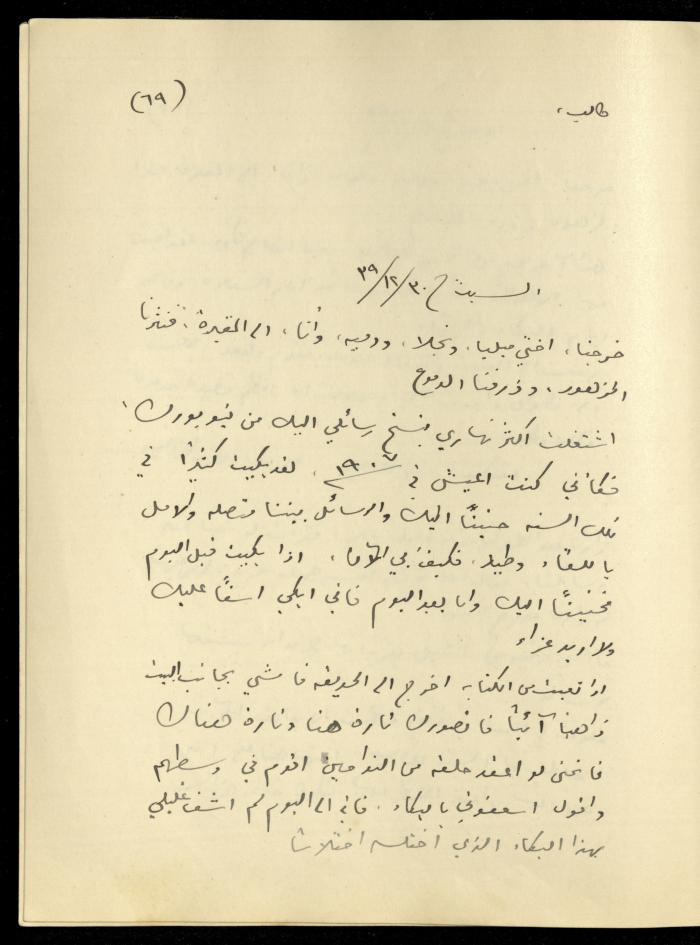 (٦٩)
طالب،
السبت ٣٠/١٢/٣٩
خرجنا، اختي ميليا، ونجلا، ودميه، وأنا، الى المقبرة، فنثرنا
الزهور، وذرفنا الدموع
اشتغلت اكثر نهاري بنسخ رسائلي اليك من نيويورك،
فكأني كنت اعيش في ١٩٠٧، لقد بكيت كثيرًا في
تلك السنه حنينًا اليك والرسائل بيننا متصله والامل
باللقاء وطيد، فكيف بي الآن، اذا بكيت قبل اليوم
فحنينًا اليك واما بعد اليوم فاني ابكي اسفًا عليك
ولا اريد عزاء
اذا تعبت من الكتابه اخرج الى الحديقه فامشي بجانب البيت
ذاهبًا آئبًا فاتصورك تارة هنا وتارة هناك
فاتمنى لو اعقد حلقه من النوادبين اقوم في وسطهم
واقول اسعفوني بالبكاء، فاني الى اليوم لم اشف غليلي
بهذا البكاء الذي اختلسه اختلاسًا